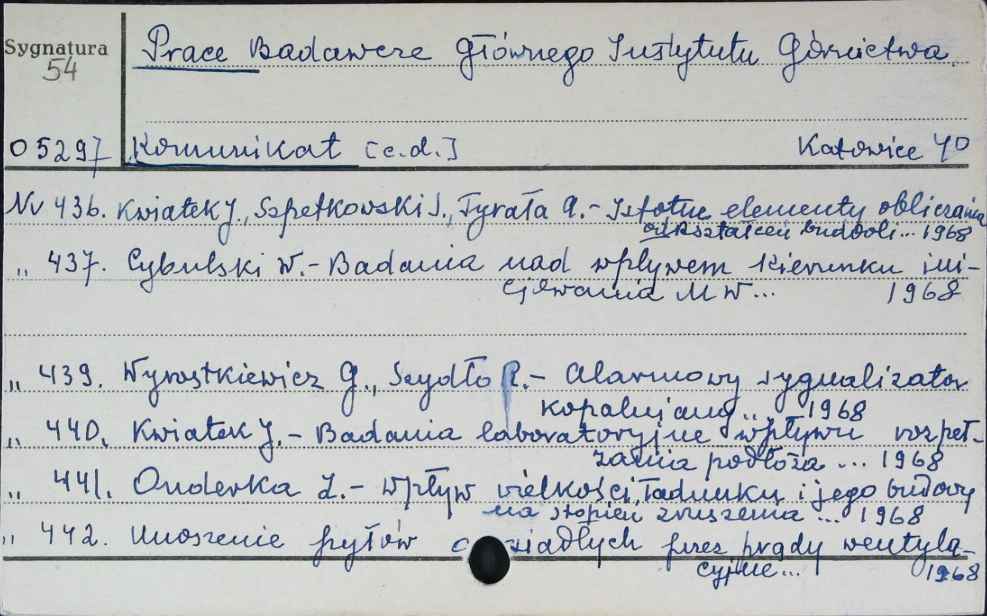 Sygnatura
54
Prace Badawcze Głównego Instytutu Górnictwa.
05297
Komunikat [c.d.]
Katowice 40
Nr 436. Kwiatek J., Szpetkowski S., Tyrała A.- Istotne elementy obliczania
odkształceń budowli... 1968
„ 437. Cybulski W.- Badania nad wpływem kierunku ini-
cjowania MW... 1968
„ 439. Wyrostkiewicz G., Szydło R.- Alarmowy sygnalizator
kopalnianą... 1968
„ 440. Kwiatek J.- Badania laboratoryjne wpływu rozpeł-
zania podłoża ... 1968
„ 441. Onderka Z.- Wpływ wielkości ładunku i jego budowy
na stopień zruszenia ... 1968
„ 442. Unoszenie pyłów przez prądy wentyla-
cyjne... 1968